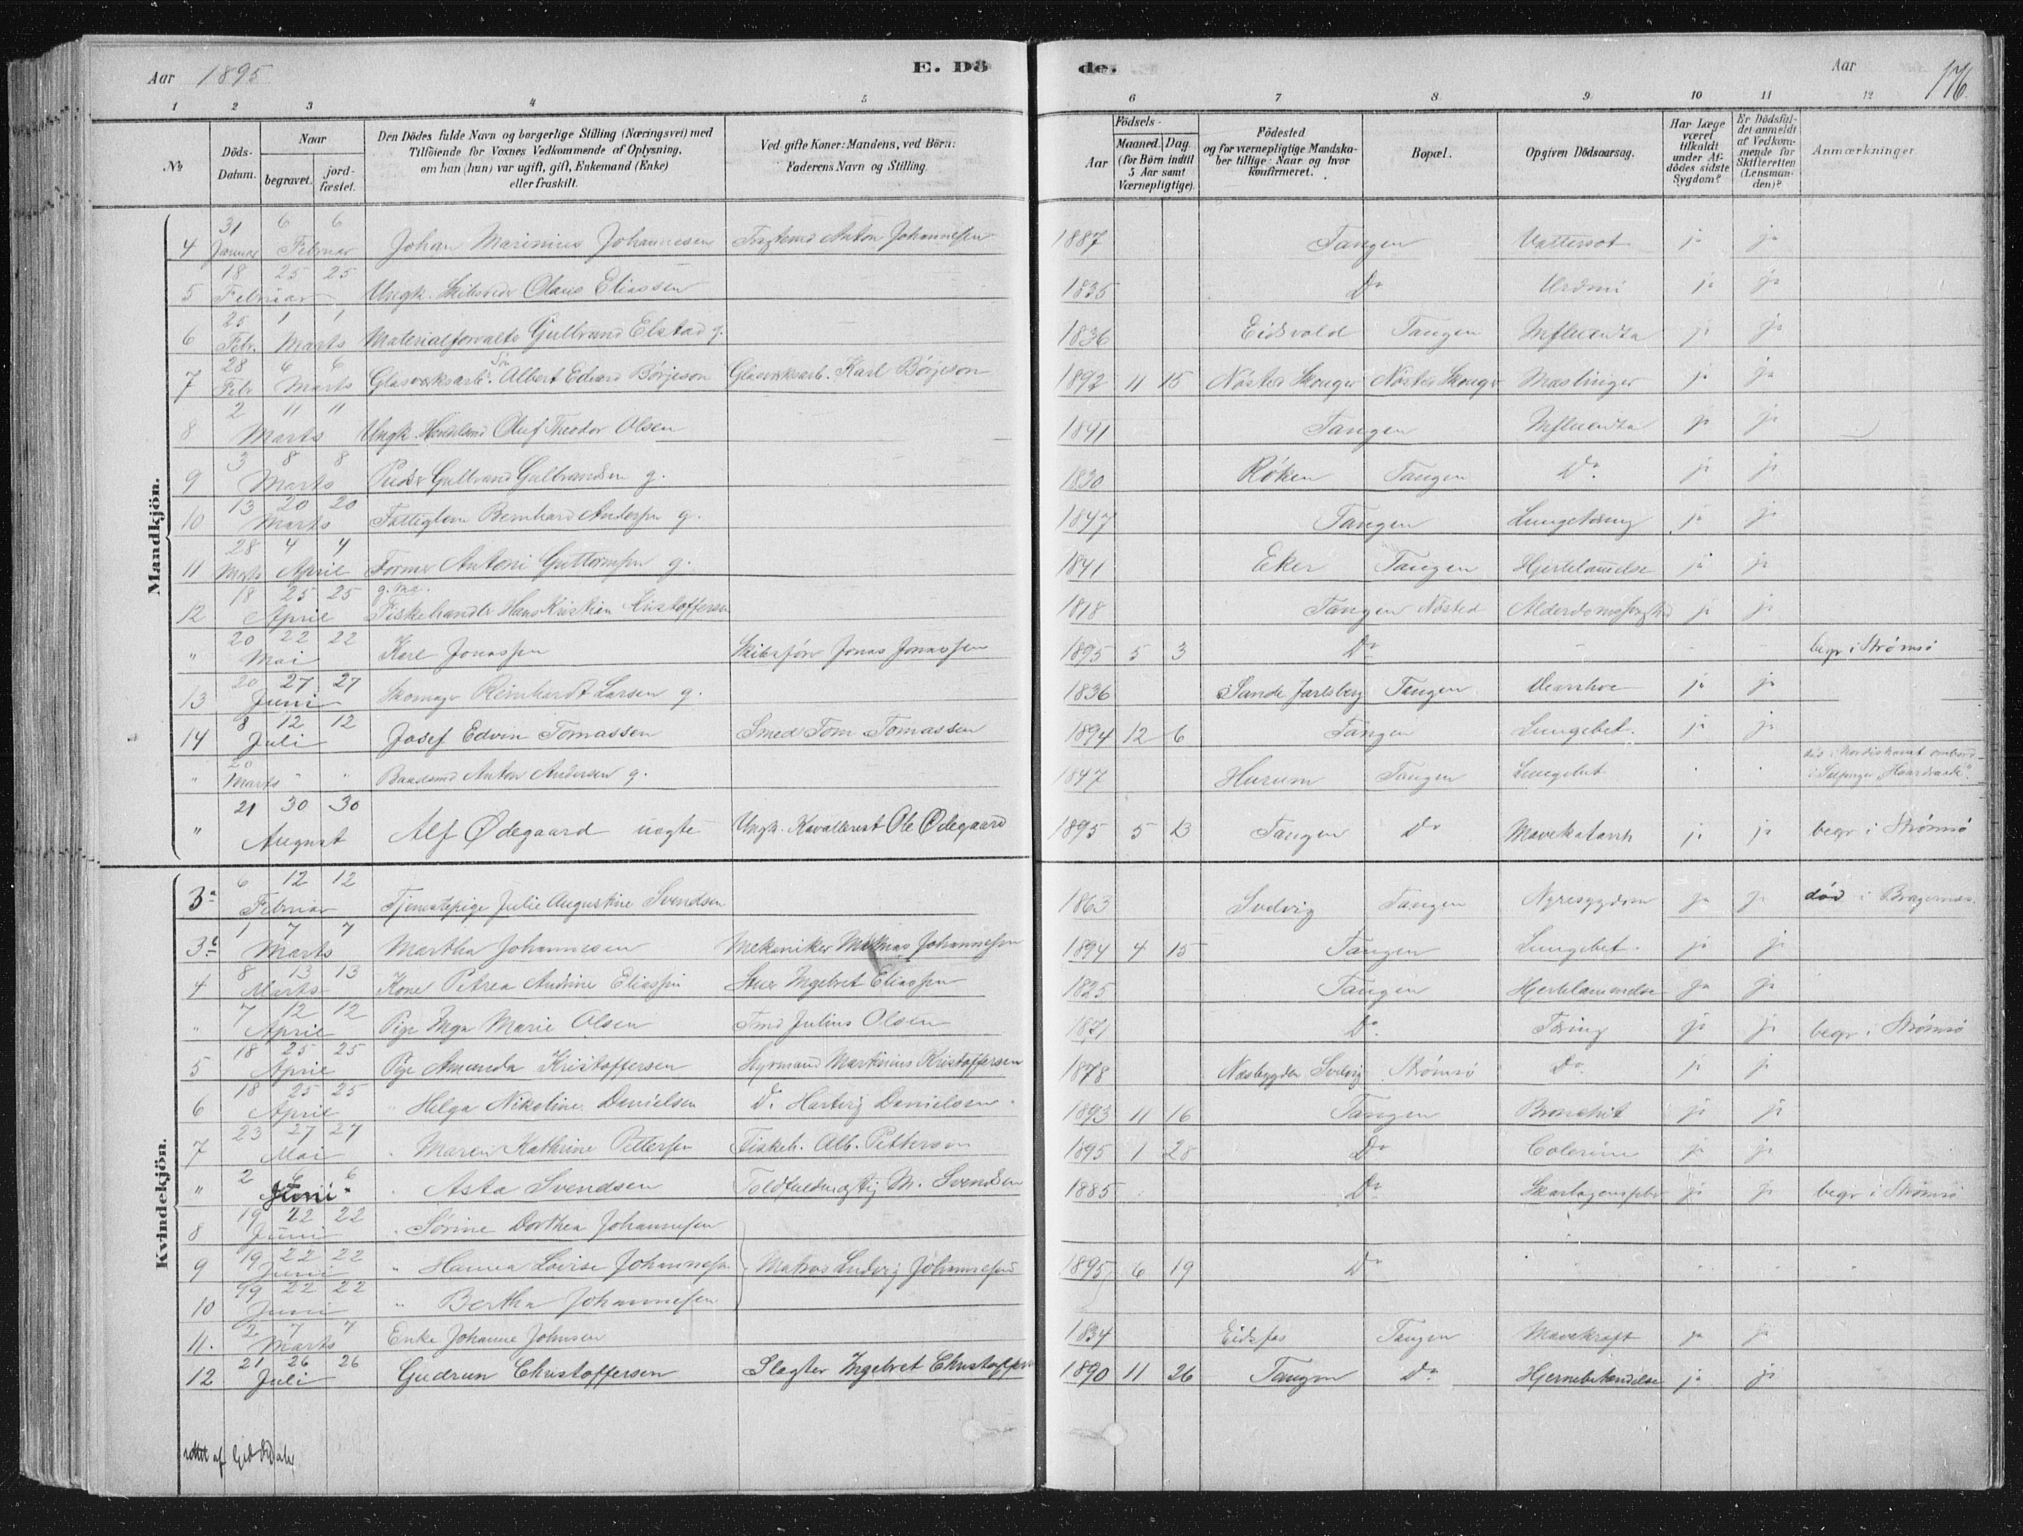 Aar 1895 E. Dö de. Aar 176.
1 2 3 4 5 6 7 8. 9. 10 11 12
No Döds-Datum. Naar begravet. jordfæstet. Den Dödes fulde Navn og borgerlige Stilling (Næringsvei) med Tilföiende for Voxnes Vedkommende af Oplysning, om han (hun) var ugift, gift, Enkemand (Enke) eller fraskilt. Ved gifte Koner: Mandens, ved Börn: Faderens Navn og Stilling. Födsels- Aar Maaned. Dag. (for Börn indtil 5 Aar samt Værnepligtige). Födested og for værnepligtige Mandskaber tillige: Naar og hvor konfirmeret. Bopæl. Opgiven Dödsaarsag. Har Læge været tilkaldt under Afdödes sidste Sygdom? Er Dödsfaldet anmeldt af Vedkommende for Skifteretten (Lensmanden)? Anmærkninger.
Mandkjön.
4 31 Januar 6 6 Februar Johan Marinius Johannesen Anton Johannesen 1887 Tangen Vattersot ja ja
5 18 25 25 Februar Ungk. Olaus Eliassen 1835 Do ja ja
6 25 Febr. 1 1 Marts Materialforvalter Gulbrand Elstad g. 1836 Eidsvold Tangen Influenza ja ja
7 28 Febr 6 6 Marts Glasværksarb. Sn Albert Edvard Børjeson Glasværksarb. Karl Børjeson 1892 11 15 Nøsted Skouger Nøsted Skouger Mæslinger ja ja
8 2 11 11 Marts Ungk. Oluf Theodor Olsen 1841 Tangen Influenza ja ja
9 3 8 8 Marts Gulbrand Gulbrandsen g. 1830 Røken Tangen Do ja ja
10 13 20 20 Marts Fattiglem Bernhard Andersen g. 1847 Tangen Lungetæring ja ja
11 28 Marts 4 4 April Former Antoni Guttormsen g. 1841 Eker Tangen Hjertelammelse ja ja
12 18 25 25 April Fiskehandler Hans Kristian Kristoffersen 1818 Tangen Nøsted ja ja
" 20 22 22 Mai Karl Jonassen Skibsfører Jonas Jonassen 1895 5 3 Do - - - begr i Strømsø
13 20 27 27 Juni Skomager Reinhardt Larsen g. 1836 Sande Jarlsberg Tangen ja ja
14 8 12 12 Juli Josef Edvin Tomassen Smed Tom Tomassen 1894 12 6 Tangen Lungebet. ja ja
" 20 Marts " " Baadsmd Anton Andersen g. 1847 Hurum Tangen Lungebet . . død i Nordishavet ombord i Sælfanger "Haardraade".
" 21 30 30 August Alf Ødegaard uægte Ungk. Kavallerist Ole Ødegaard 1895 5 13 Tangen Do Mavekatarrh ja ja begr i Strømsø
Kvindekjön.
3a 6 12 12 Februar Tjenestepige Julie Augustine Svendsen 1863 Svelvig Tangen Nyresygdom ja ja død i Bragernæs.
3b 1 7 7 Marts Martha Johannesen Mekaniker Johannesen 1894 4 15 Tangen Lungebet. ja ja
4 8 13 13 Marts Kone Petrea Andrine Eliassen Ingebret Eliassen 1825 Tangen Hjertelammelse ja ja
" 7 12 12 April Pige Inga Marie Olsen Tmd Julius Olsen 1871 Do Tæring ja ja begr i Strømsø
5 18 25 25 April Pige Amanda Kristoffersen Styrmand Martinius Kristoffersen 1878 Næsbygden Svelvig Strømsø Do ja ja
6 18 25 25 April " Helga Nikoline Danielsen Do Hartvig Danielsen 1893 11 16 Tangen Bronchit ja ja
7 23 27 27 Mai " Maren Kathrine Pettersen Fiskeh. Alb. Petterson 1895 1 28 Do Colerine ja ja
" 2 6 6 Juni " Asta Svendsen Toldfuldmægtig M. Svendsen 1885 Do Skarlagensfeber ja ja begr i Strømsø
8 19 22 22 Juni " Sørine Dorthea Johannesen
9 19 22 22 Juni " Hanna Lovise Johannesen Matros Ludvig Johannesen 1895 6 19 Do
10 19 22 22 Juni " Bertha Johannesen
11. 2 7 7 Marts Enke Johanne Johnsen 1834 Eidsfos Tangen Mavekræft ja ja
12 21 26 26 Juli Gudrun Christoffersen Slagter Ingebret Christoffersen 1890 11 26 Tangen Do Hjernebetændelse ja ja
rettet af